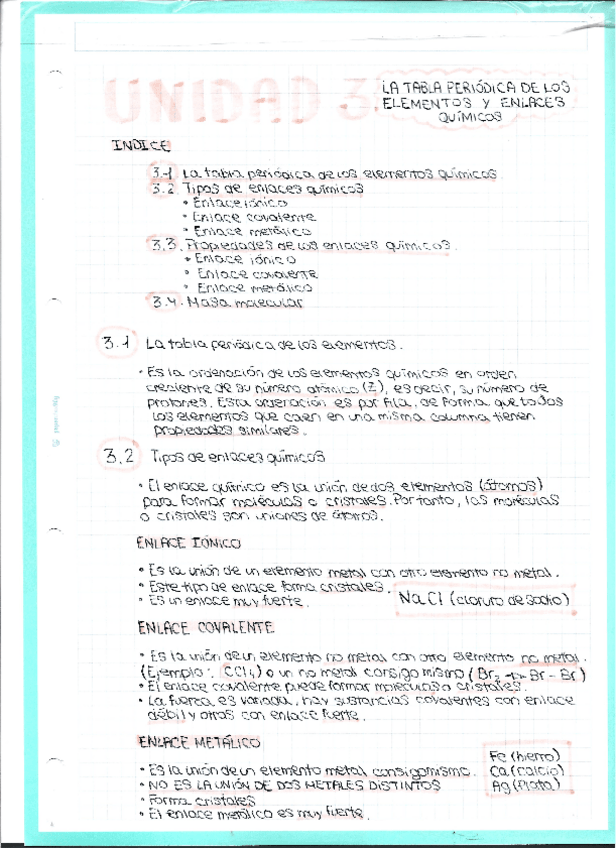 UNIDAD 3
LA TABLA PERIÓDICA DE LOS
ELEMENTOS Y ENLACES
QUÍMICOS
INDICE
3.1 La tabla periódica de los elementos químicos.
3.2. Tipos de enlaces químicos
• Enlace iónico
• Enlace covalente
• Enlace metálico
3.3. Propiedades de los enlaces químicos.
• Enlace iónico
• Enlace covalente
• Enlace metálico
3.4. Masa molecular
3.1 La tabla periódica de los elementos.
• Es la ordenación de los elementos químicos en orden
creciente de su número atómico (Z), es decir, su número de
protones. Esta ordenación es por fila, de forma que todos
los elementos que caen en una misma columna tienen
propiedades similares.
3.2 Tipos de enlaces químicos
• El enlace químico es la unión de dos elementos (átomos)
para formar moléculas o cristales. Por tanto, las moléculas
o cristales son uniones de átomos.
ENLACE IÓNICO
• Es la unión de un elemento metal con otro elemento no metal.
• Este tipo de enlace forma cristales.
• Es un enlace muy fuerte.
NaCl (cloruro de sodio)
ENLACE COVALENTE
• Es la unión de un elemento no metal con otro elemento no metal.
(Ejemplo: CCl4) o un no metal consigo mismo (Br2 → Br - Br)
• El enlace covalente puede formar moléculas o cristales.
• La fuerza es variada, hay sustancias covalentes con enlace
débil y otros con enlace fuerte.
ENLACE METÁLICO
• Es la unión de un elemento metal consigo mismo.
• NO ES LA UNIÓN DE DOS METALES DISTINTOS
• Forma cristales
• El enlace metálico es muy fuerte.
Fe (hierro)
Ca (calcio)
Ag (Plata)